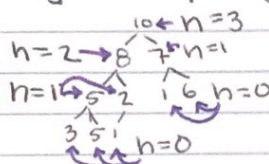 10 ← h = 3
h = 2 → 8 7 h = 1
h = 1 → 5 2 1 6 h = 0
3 5 1 h = 0